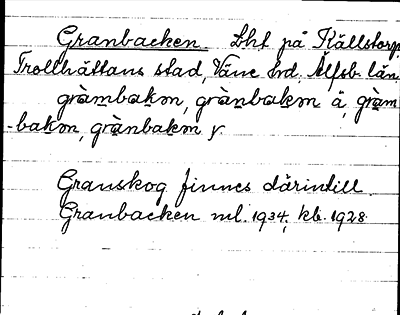 Granbacken. Lht på Källstorp,
Trollhättans stad, Väne hd, Älfsb. län.
gràmbakɷn, grànbakɷn ä, gràm
-bakɷn, grànbakɷn y
Granskog finnes därintill.
Granbacken ml. 1934, kb. 1928.